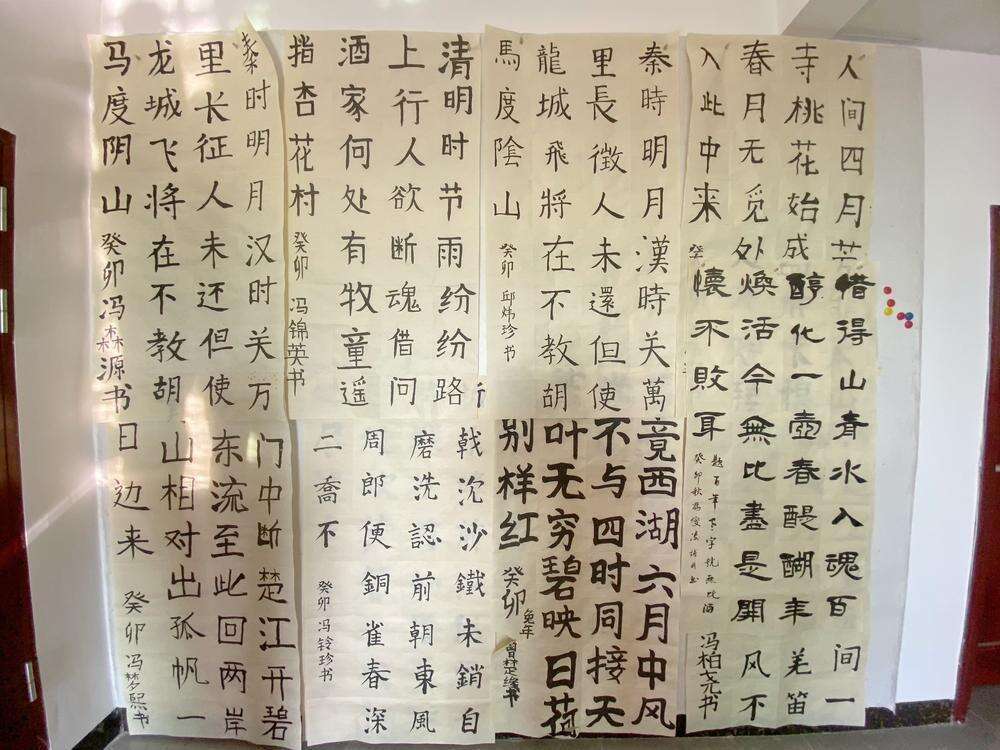 人间四月芒
寺桃花始成
春月无觅处
入此中来
惜得山青水入魂百间一
醇化一壶春醍醐羌笛
焕活今無比盡是開风不
懷不敗耳
冯柏尧书
秦時明月漢時关萬
里長徵人未還但使
龍城飛將在不教胡
馬度陰山
癸卯 邱炜珍书
清明时节雨纷纷路
上行人欲断魂借问
酒家何处有牧童遥
指杏花村
癸卯 冯锦英书
秦时明月汉时关万
里长征人未还但使
龙城飞将在不教胡
马度阴山
癸卯冯森源书
竟西湖六月中风
不与四时同接天
叶无穷碧映日荷
别样红
癸卯兔年
曾楚缘书
戟沈沙鐵未銷自
磨洗認前朝東風
周郎便銅雀春深
二喬不
癸卯 冯铃珍书
门中断楚江开碧
东流至此回两岸
山相对出孤帆一
日边来
癸卯 冯梦熙书